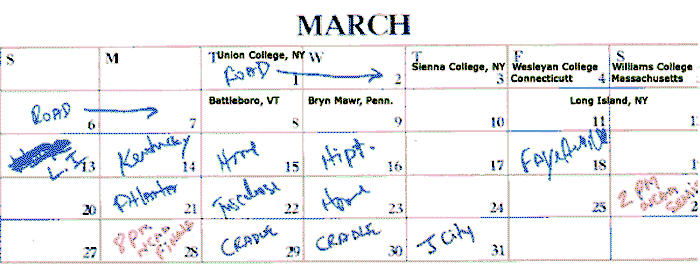 MARCH
S M T W T F S
Union College, NY
ROAD 1 2
Sienna College, NY
3
Wesleyan College
Connecticutt 4
Williams College
Massachusetts
ROAD
6 7
Battleboro, VT
8
Bryn Mawr, Penn.
9
10
Long Island, NY
11
L.I. 13
Kentucky
14
Home
15
16
17
18
20
21
22
Home
23
24
25
2 PM
27
8 PM
28
CRADLE
29
CRADLE
30
J City
31